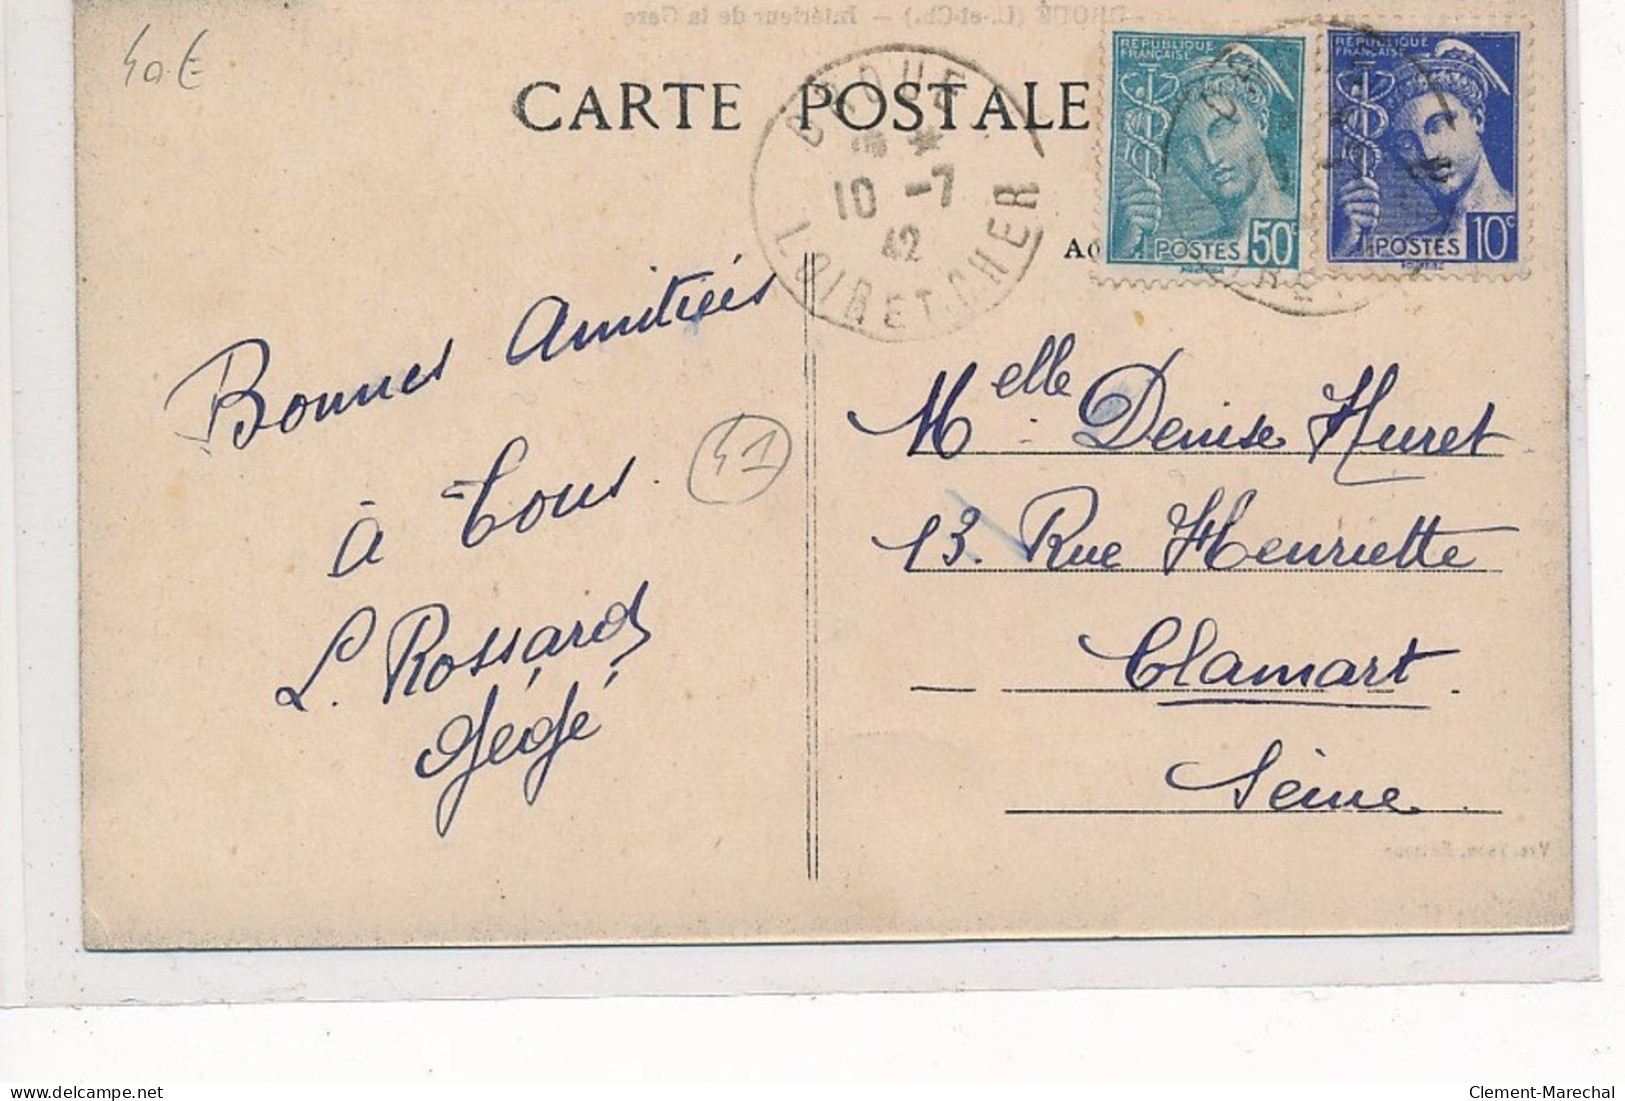 40€
DROUÉ (L.-et-Ch.) — Intérieur de la Gare
CARTE POSTALE
DROUE
10 -7
42
LOIR ET CHER
RÉPUBLIQUE
FRANÇAISE
POSTES 50c
RÉPUBLIQUE
FRANÇAISE
POSTES 10c
Bonnes Amitiés
à Tous.
L. Rossard
Gégé
41
Melle Denise Huret
13. Rue Henriette
Clamart.
Seine.
delcampe.net
Clement-Marechal